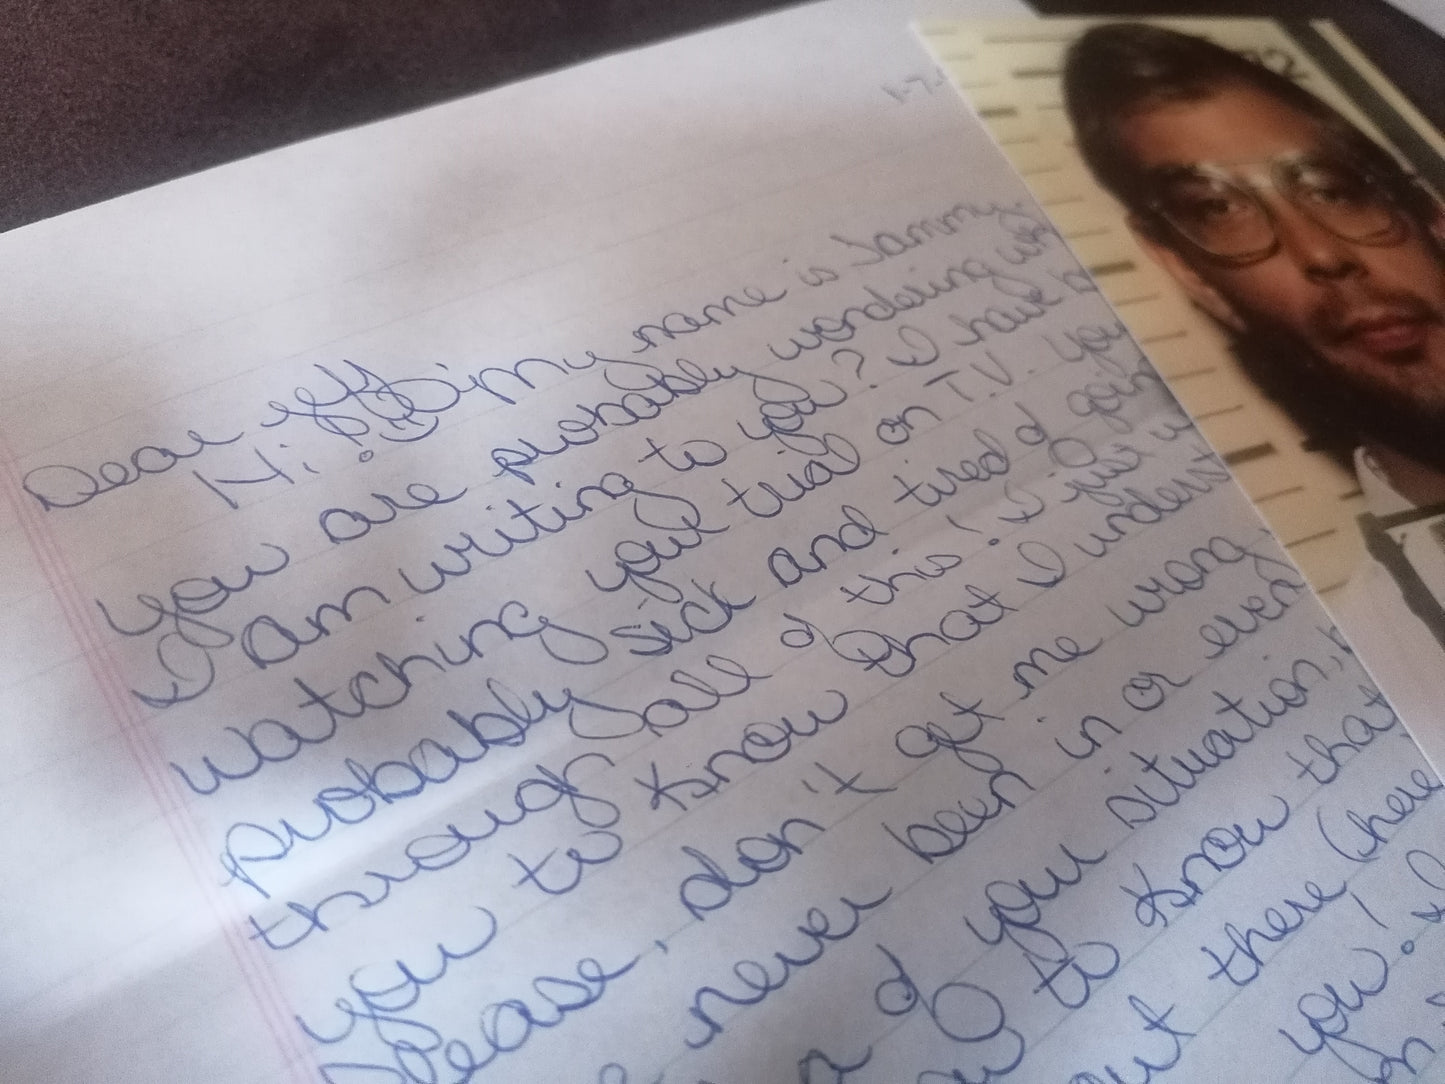 Dear Jeff,
Hi! my name is Tammy.
You are probably wondering
I am writing to you? I have
watching your trial on T.V. You
probably sick and tired of
through all of this! I just
you to know that I
Please, don't get me wrong
never been in or even
of your situation,
to know that
out there (here
you!